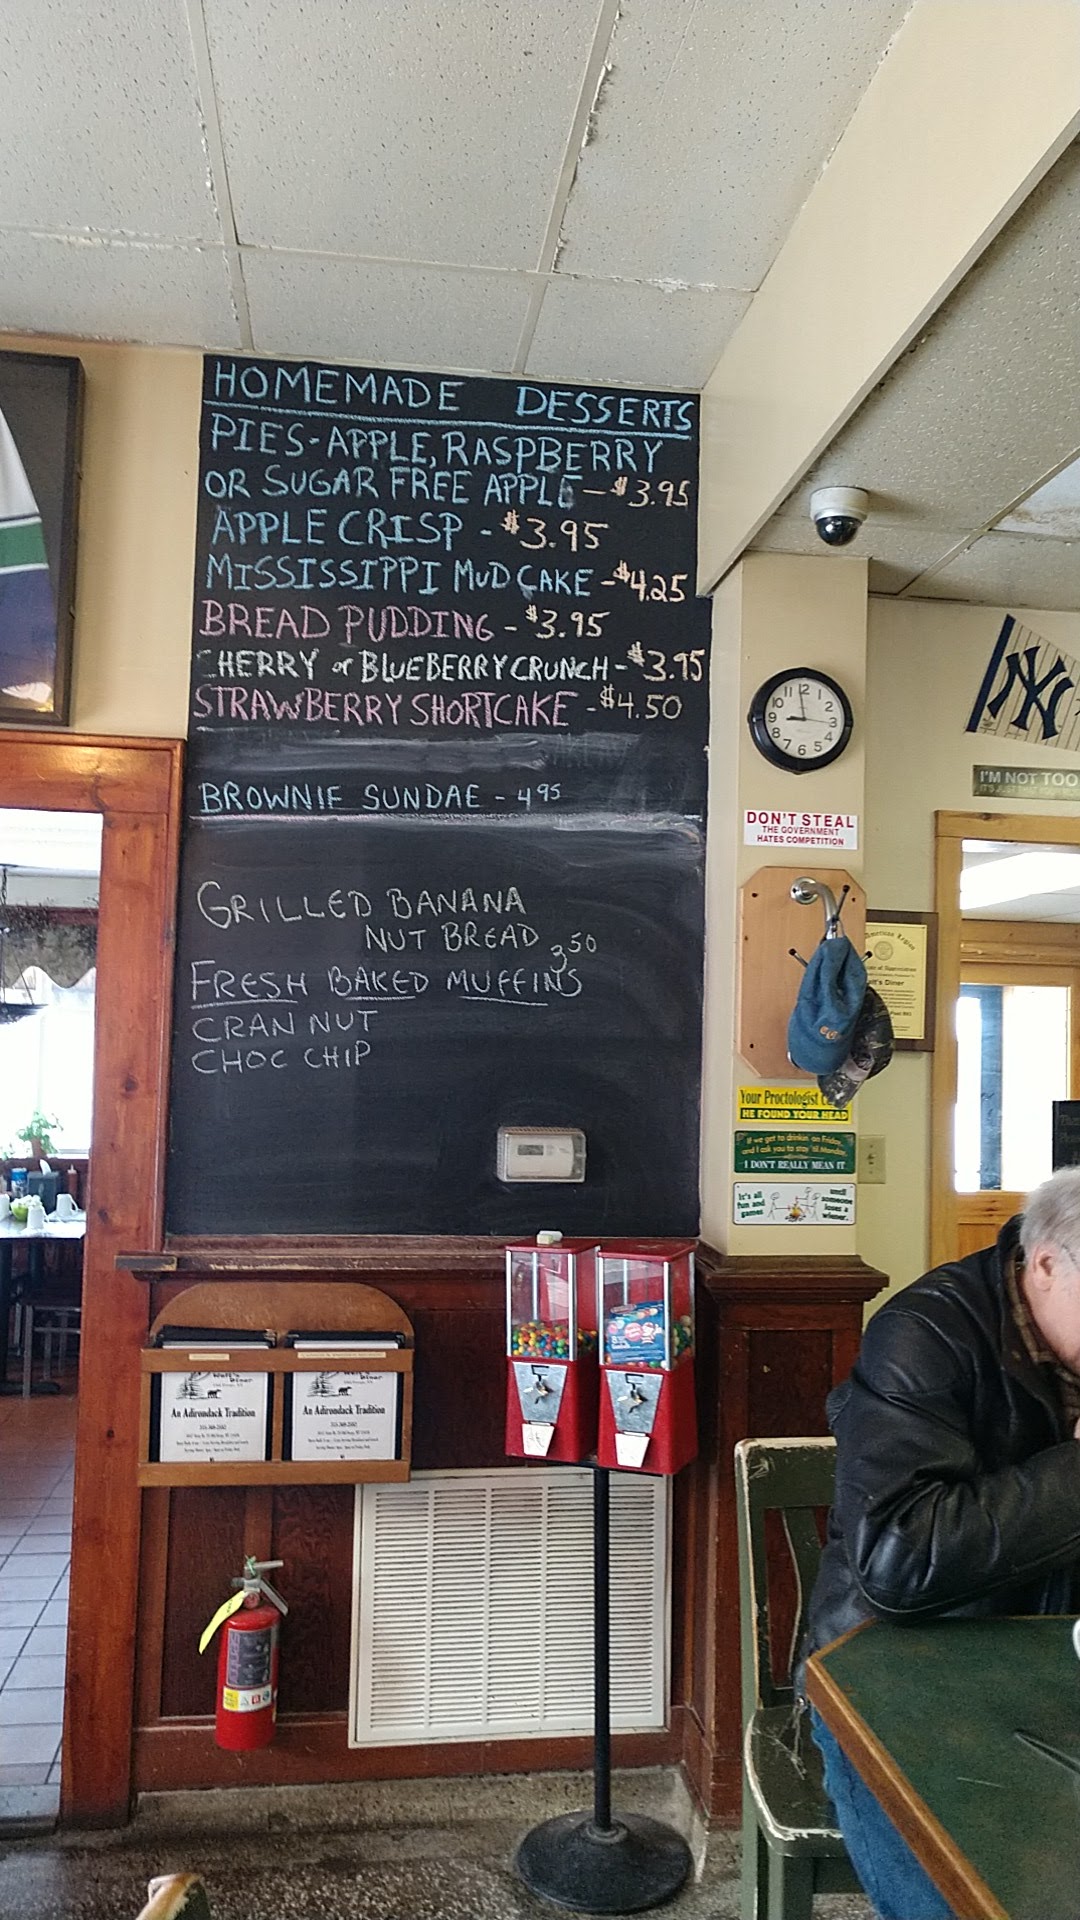 HOMEMADE DESSERTS
PIES-APPLE, RASPBERRY
OR SUGAR FREE APPLE - $3.95
APPLE CRISP - $3.95
MISSISSIPPI MUD CAKE - $4.25
BREAD PUDDING - $3.95
CHERRY or BLUEBERRY CRUNCH - $3.95
STRAWBERRY SHORTCAKE - $4.50
BROWNIE SUNDAE - 4 95
GRILLED BANANA
NUT BREAD 3 50
FRESH BAKED MUFFINS
CRAN NUT
CHOC CHIP
12
2
3
4
5
6
7
8
9
10
11
NY
I'M NOT TOO
DON'T STEAL
THE GOVERNMENT
HATES COMPETITION
American Legion
of Appreciation
Diner
Your Proctologist
HE FOUND YOUR HEAD
If we get to drinkin' on Friday,
and I ask you to stay 'til Monday,
I DON'T REALLY MEAN IT
It's all
fun and
games
until
someone
loses a
wiener.
Walt's Diner
An Adirondack Tradition
Walt's Diner
An Adirondack Tradition